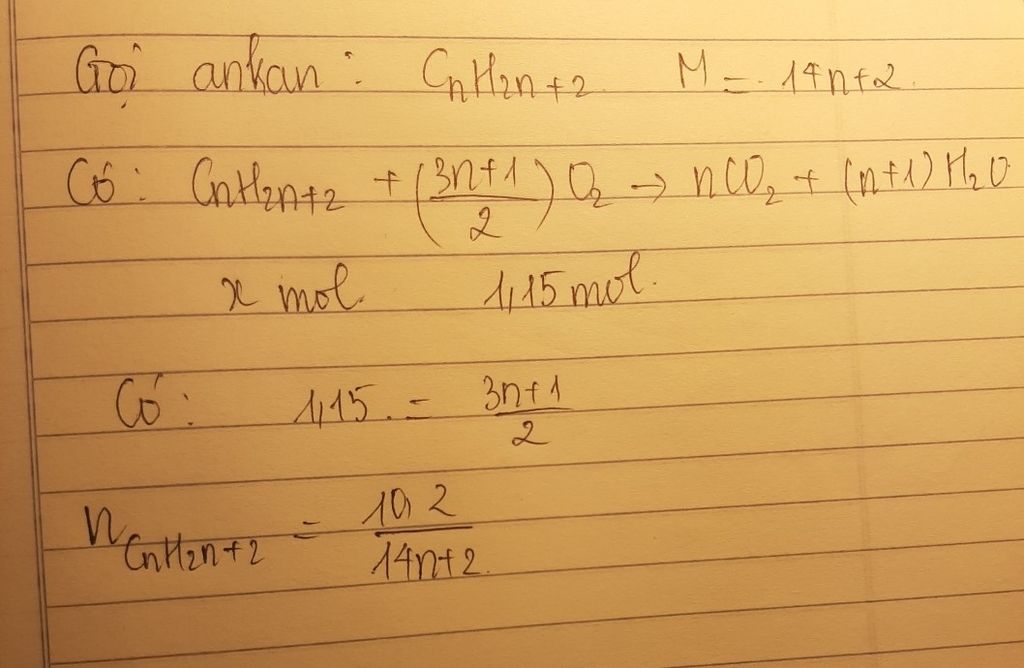 Gọi ankan : CnH2n+2 M = 14n+2.
Có : CnH2n+2 + (3n+1/2) O2 → nCO2 + (n+1) H2O
x mol. 1,15 mol.
Có : 1,15. = 3n+1/2
nCnH2n+2 = 10,2/14n+2.